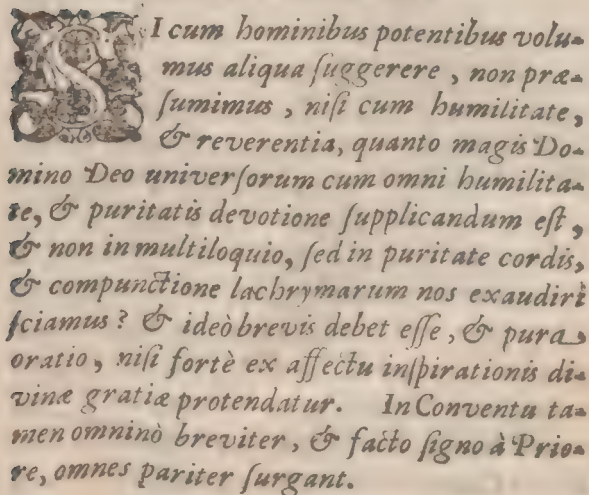 SI cum hominibus potentibus volu-
mus aliqua ſuggerere , non præ-
ſumimus , niſi cum humilitate,
& reverentia, quanto magis Do-
mino Deo univerſorum cum omni humilita-
te, & puritatis devotione ſupplicandum eſt ,
& non in multiloquio, ſed in puritate cordis,
& compunctione lachrymarum nos exaudiri
ſciamus? & ideò brevis debet eſſe, & pura
oratio, niſi fortè ex affectu inſpirationis di-
vinæ gratiæ protendatur. In Conventu ta-
men omninò breviter, & facto ſigno à Prio-
re, omnes pariter ſurgant.